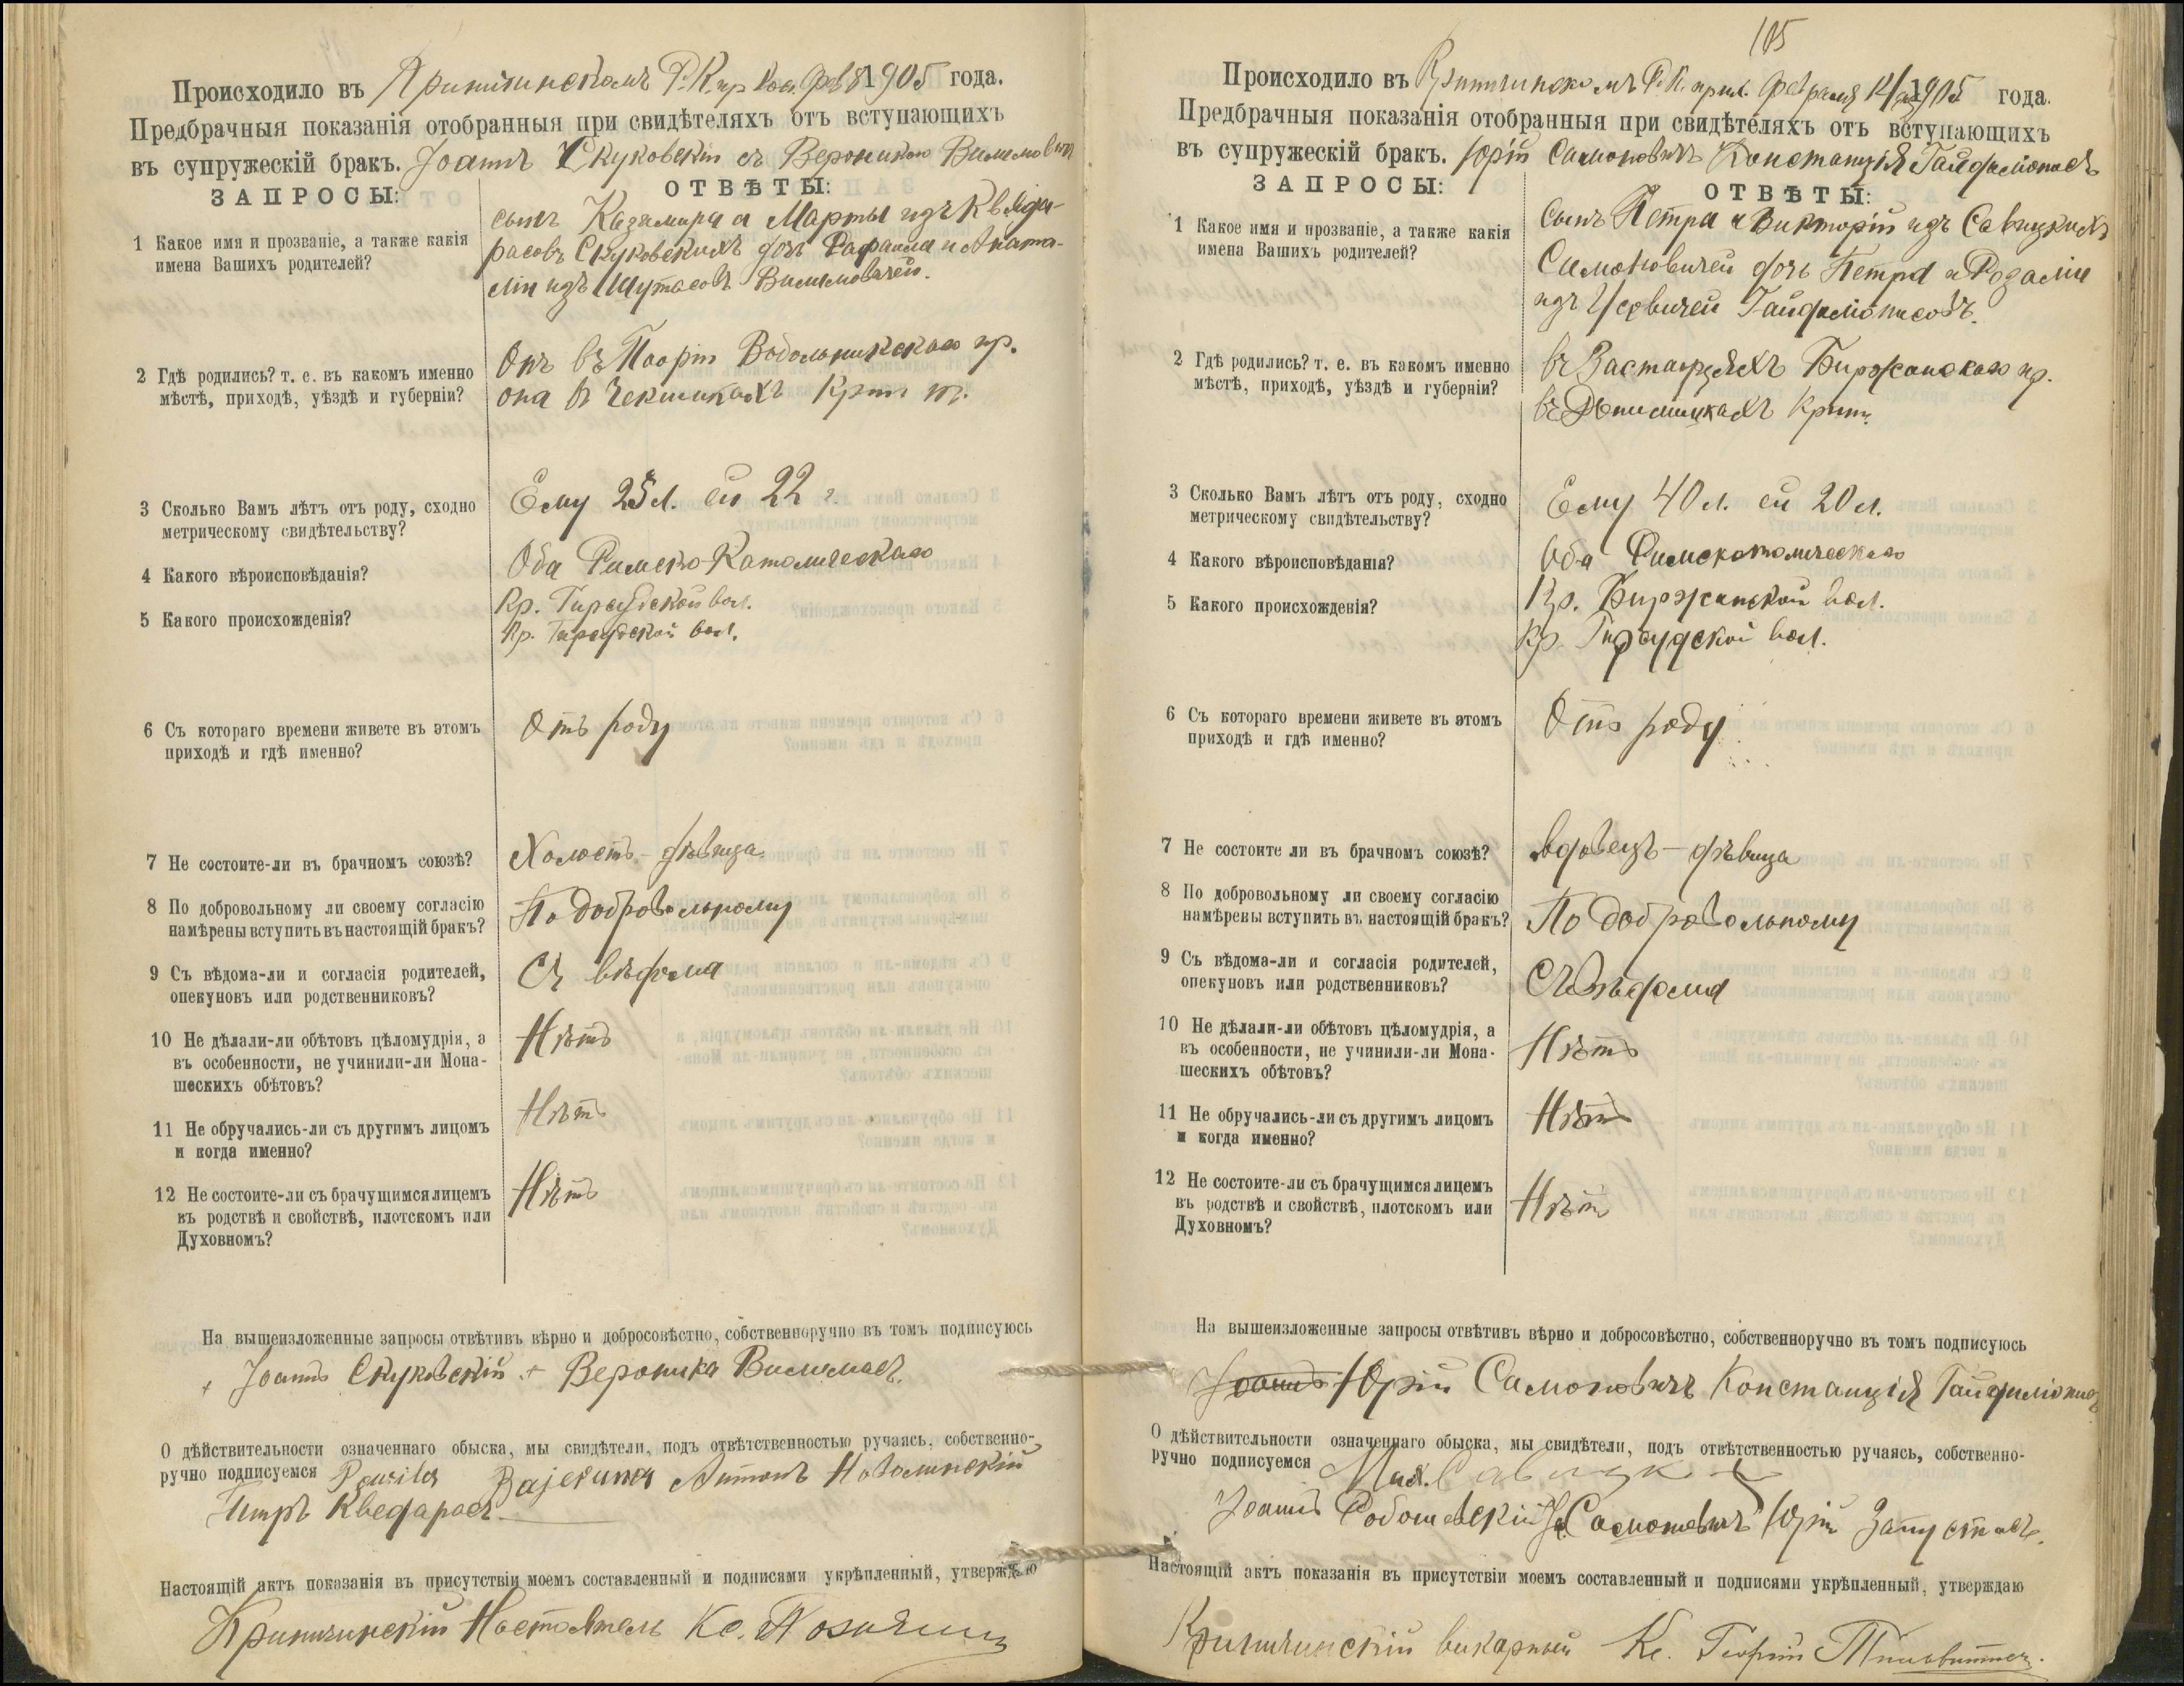 Происходило въ Криничинскомъ Р. К. пр. Кос. Фев 8 1905 года.
Предбрачныя показанія отобранныя при свидѣтеляхъ отъ вступающихъ
въ супружескій бракъ. Іоаннъ Скуковскій съ Вероникою
ЗАПРОСЫ:
ОТВѢТЫ:
1 Какое имя и прозваніе, а также какія
имена Вашихъ родителей?
сынъ Казимира и Марты изъ Квяда-
расовъ Скуковскихъ дочь Рафаила и Аната-
ліи изъ Шутасовъ
2 Гдѣ родились? т. е. въ какомъ именно
мѣстѣ, приходѣ, уѣздѣ и губерніи?
Онъ въ пр.
она въ
3 Сколько Вамъ лѣтъ отъ роду, сходно
метрическому свидѣтельству?
Ему 25 л. ей 22 г
4 Какого вѣроисповѣданія?
Оба Римско-Католическаго
5 Какого происхожденія?
Кр. Гирсудской вол.
Кр. Гирсудской вол.
6 Съ котораго времени живете въ этомъ
приходѣ и гдѣ именно?
Отъ роду
7 Не состоите-ли въ брачномъ союзѣ?
Холостъ - дѣвица
8 По добровольному ли своему согласію
намѣрены вступить въ настоящій бракъ?
По добровольному
9 Съ вѣдома-ли и согласія родителей,
опекуновъ или родственниковъ?
Съ вѣдома
10 Не дѣлали-ли обѣтовъ цѣломудрія, а
въ особенности, не учинили-ли Мона-
шескихъ обѣтовъ?
Нѣтъ
11 Не обручались-ли съ другимъ лицомъ
и когда именно?
Нѣтъ
12 Не состоите-ли съ брачущимся лицемъ
въ родствѣ и свойствѣ, плотскомъ или
Духовномъ?
Нѣтъ
На вышеизложенные запросы отвѣтивъ вѣрно и добросовѣстно, собственноручно въ томъ подписуюсь
+ Іоаннъ Скуковскій + Вероника
О дѣйствительности означеннаго обыска, мы свидѣтели, подъ отвѣтственностью ручаясь, собственно-
ручно подписуемся Антонъ
Петръ Кведарасъ
Настоящій актъ показанія въ присутствіи моемъ составленный и подписями укрѣпленный, утверждаю
Криничинскій Настоятель Кс.
105
Происходило въ Криничинскомъ Р. К. прих. Февраля 12 1905 года.
Предбрачныя показанія отобранныя при свидѣтеляхъ отъ вступающихъ
въ супружескій бракъ. Юрій Самоновичъ Констанція Гайдаміонисъ
ЗАПРОСЫ:
ОТВѢТЫ:
1 Какое имя и прозваніе, а также какія
имена Вашихъ родителей?
сынъ Петра и Викторіи изъ Савицкихъ
Самоновичей дочь Петра и Розаліи
изъ Гайдаміонисовъ.
2 Гдѣ родились? т. е. въ какомъ именно
мѣстѣ, приходѣ, уѣздѣ и губерніи?
въ Биржанскаго пр.
въ Крин.
3 Сколько Вамъ лѣтъ отъ роду, сходно
метрическому свидѣтельству?
Ему 40 л. ей 20 л.
4 Какого вѣроисповѣданія?
Оба Римскокатолическаго
5 Какого происхожденія?
Кр. Биржанской вол.
Кр. Гирсудской вол.
6 Съ котораго времени живете въ этомъ
приходѣ и гдѣ именно?
Отъ роду
7 Не состоите ли въ брачномъ союзѣ?
вдовецъ - дѣвица
8 По добровольному ли своему согласію
намѣрены вступить въ настоящій бракъ?
По добровольному
9 Съ вѣдома-ли и согласія родителей,
опекуновъ или родственниковъ?
Съ вѣдома
10 Не дѣлали-ли обѣтовъ цѣломудрія, а
въ особенности, не учинили-ли Мона-
шескихъ обѣтовъ?
Нѣтъ
11 Не обручались-ли съ другимъ лицомъ
и когда именно?
Нѣтъ
12 Не состоите-ли съ брачущимся лицемъ
въ родствѣ и свойствѣ, плотскомъ или
Духовномъ?
Нѣтъ
На вышеизложенные запросы отвѣтивъ вѣрно и добросовѣстно, собственноручно въ томъ подписуюсь
Іоаннъ Юрій Самоновичъ Констанція Гайдаміонисъ
О дѣйствительности означеннаго обыска, мы свидѣтели, подъ отвѣтственностью ручаясь, собственно-
ручно подписуемся
Іоаннъ Самоновичъ Юрій Запустасъ.
Настоящій актъ показанія въ присутствіи моемъ составленный и подписями укрѣпленный, утверждаю
Криничинскій викарный Кс. Георгій